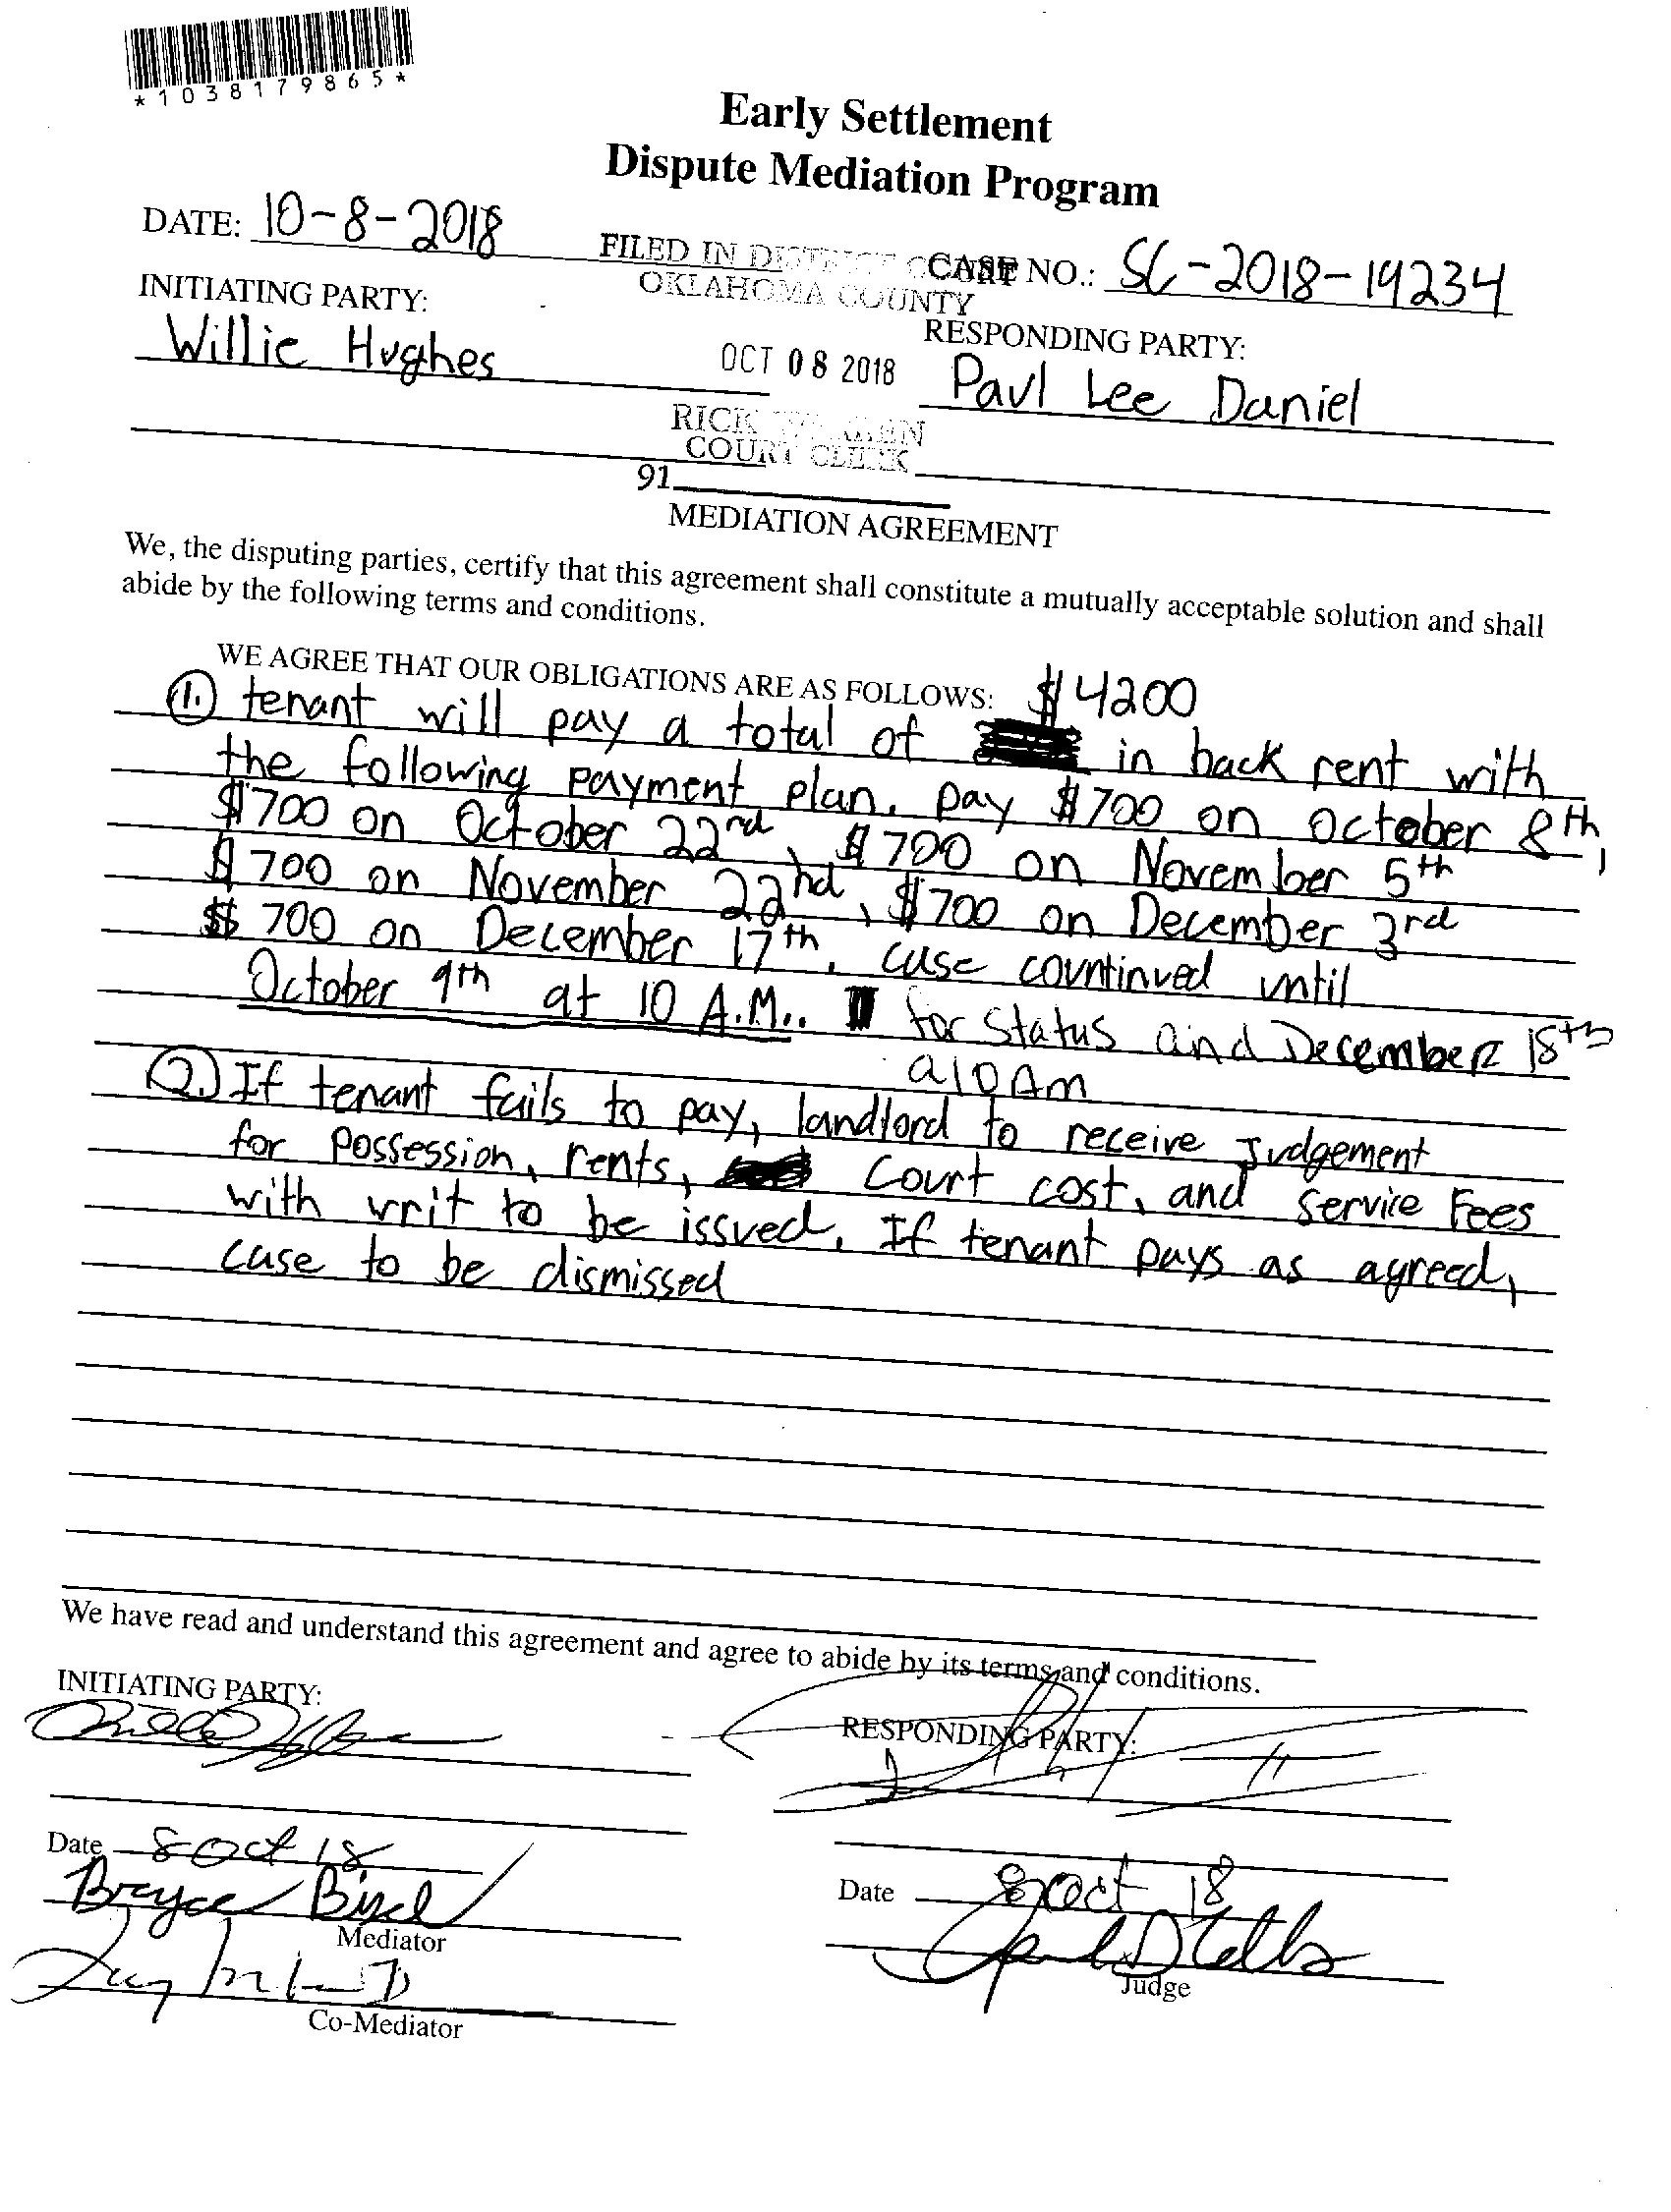 *1038179865*
Early Settlement
Dispute Mediation Program
DATE: 10-8-2018
FILED IN DISTRICT COURT
OKLAHOMA COUNTY
CASE NO.: SC-2018-19234
INITIATING PARTY:
Willie Hughes
OCT 08 2018
RESPONDING PARTY:
Paul Lee Daniel
RICK WARREN
COURT CLERK
91
MEDIATION AGREEMENT
We, the disputing parties, certify that this agreement shall constitute a mutually acceptable solution and shall
abide by the following terms and conditions.
WE AGREE THAT OUR OBLIGATIONS ARE AS FOLLOWS: $4200
1. tenant will pay a total of in back rent with
the following payment plan. pay $700 on october 8th,
$700 on October 22nd, $700 on November 5th
$700 on November 22nd, $700 on December 3rd
$700 on December 17th. case countinued until
October 9th at 10 A.M.. for Status and December 18th
a10Am
2.) If tenant fails to pay, landlord to receive Judgement
for possession, rents, court cost, and service Fees
with writ to be issued. If tenant pays as agreed,
case to be dismissed
We have read and understand this agreement and agree to abide by its terms and conditions.
INITIATING PARTY:
RESPONDING PARTY:
Date 8 Oct 18
Date 8 Oct 18
Mediator
Judge
Co-Mediator